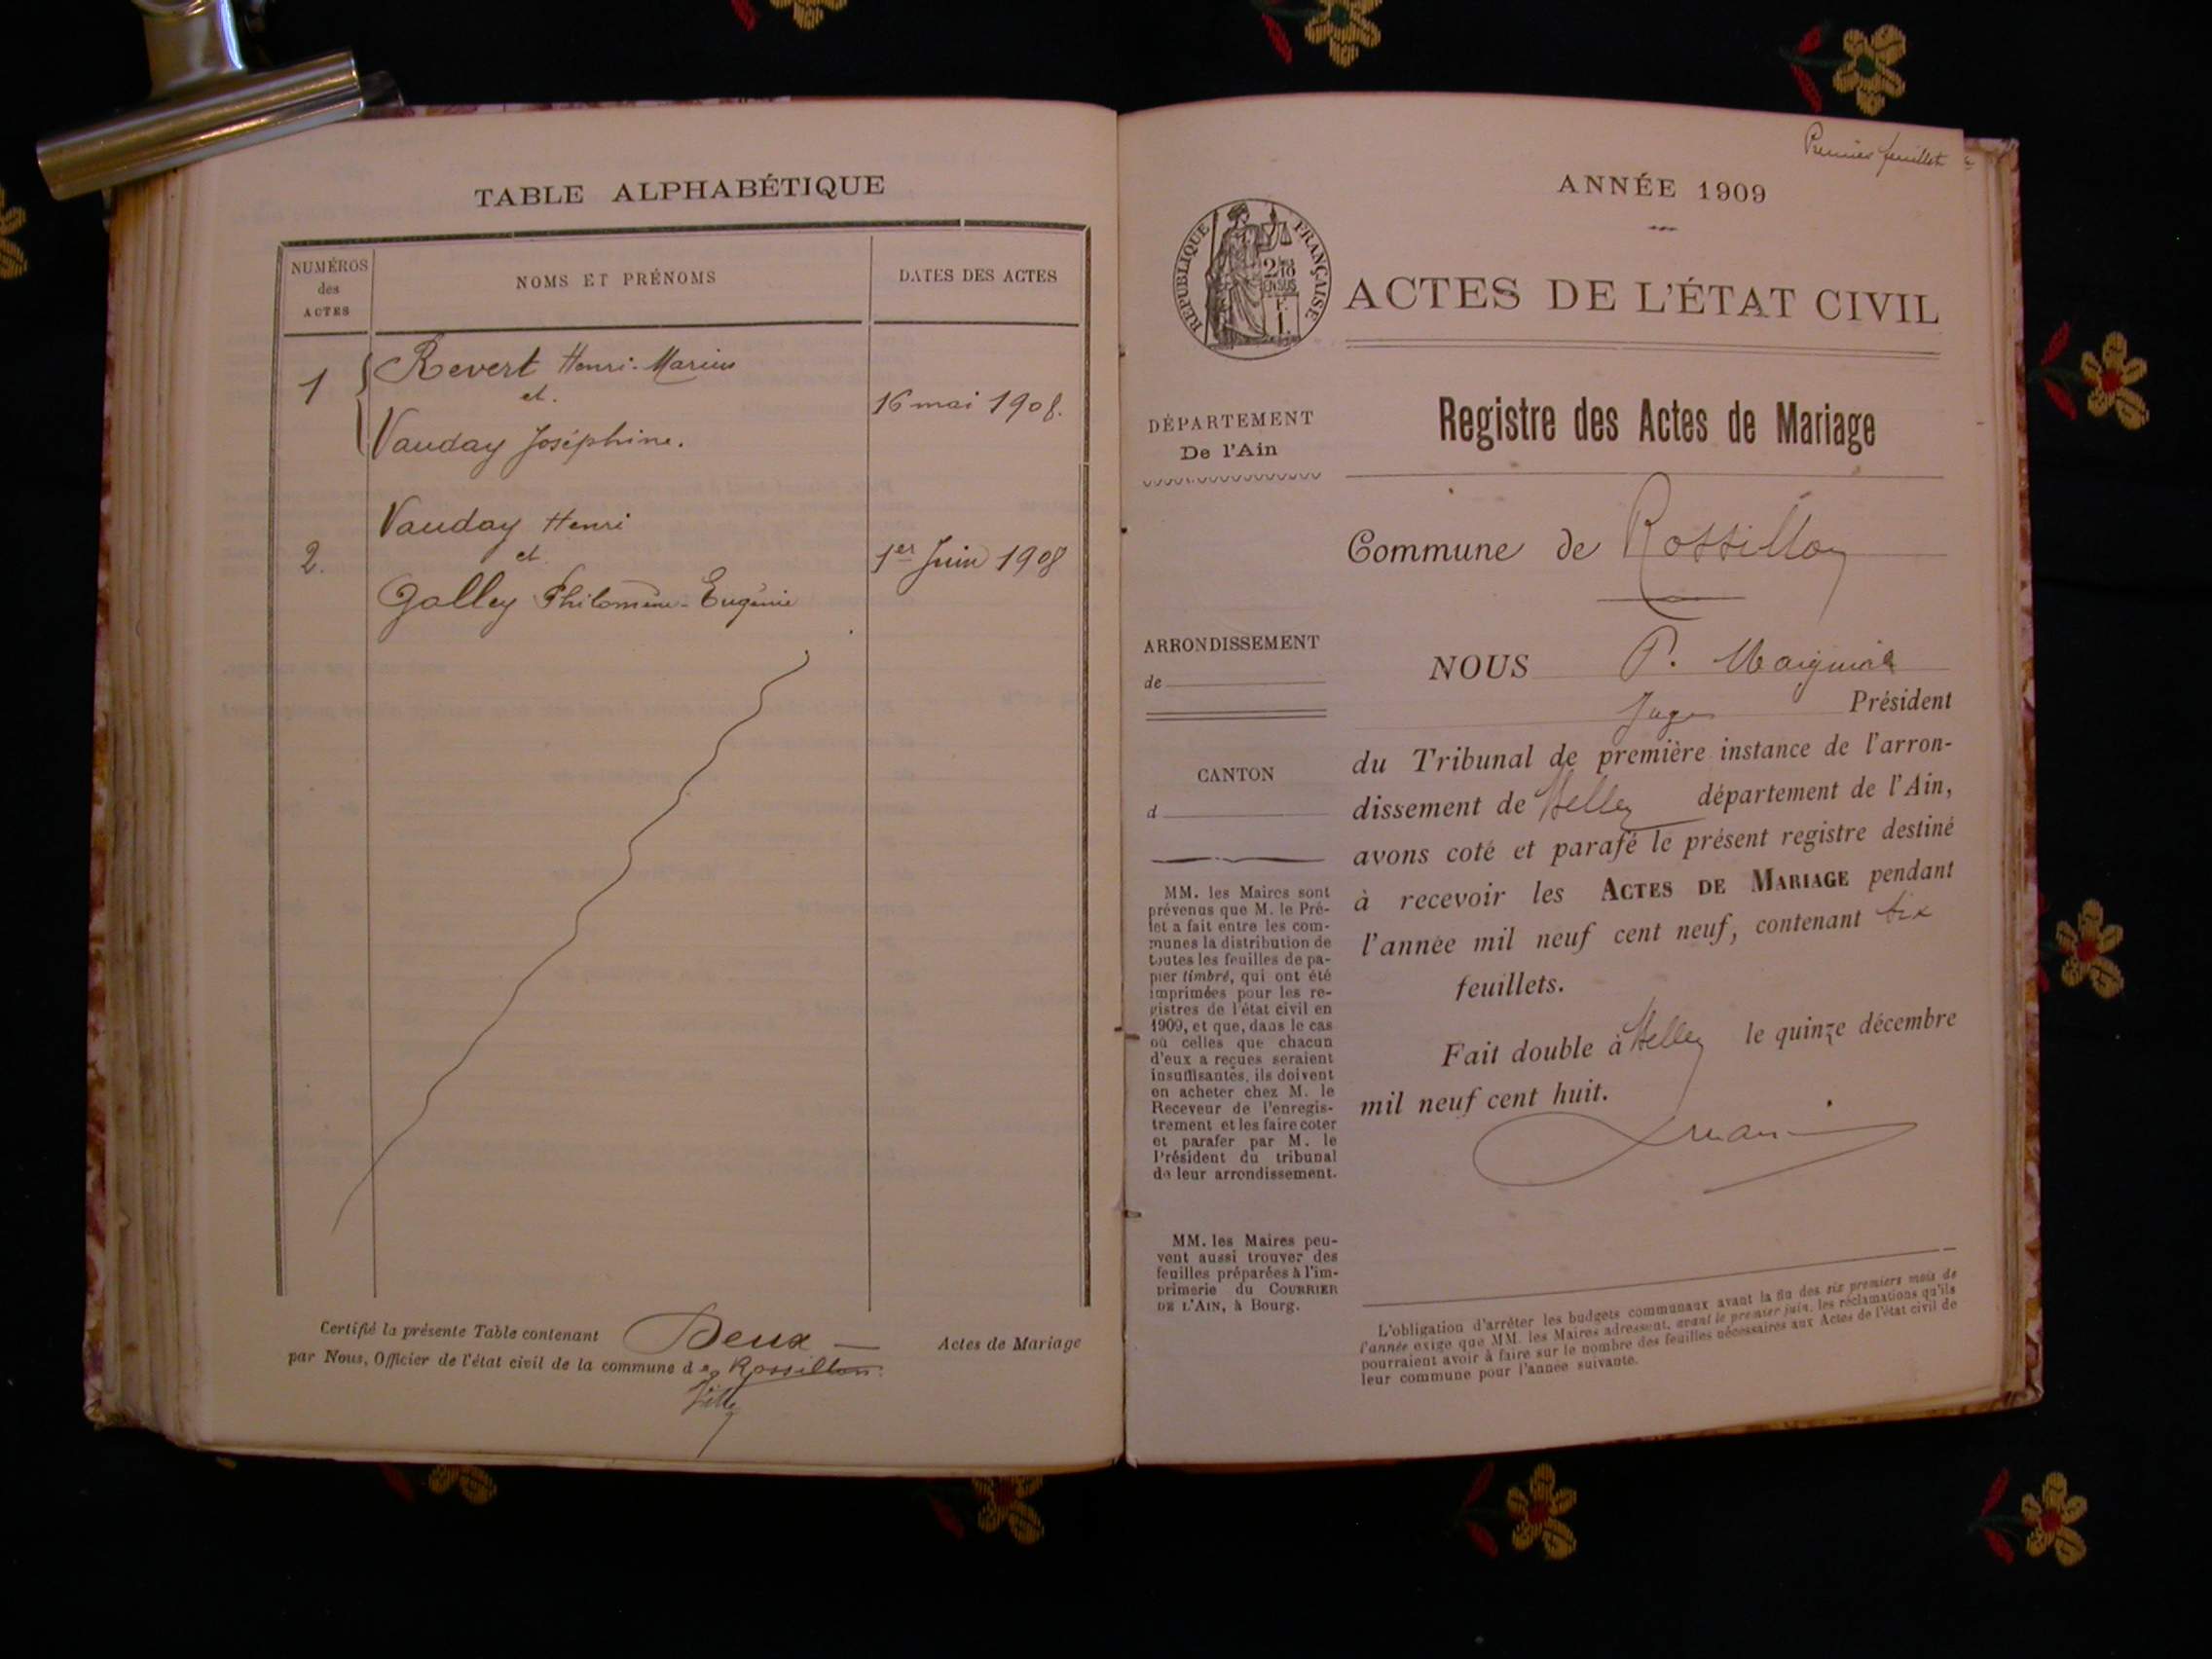 TABLE ALPHABÉTIQUE
NUMÉROS
des
ACTES
NOMS ET PRÉNOMS
DATES DES ACTES
1
Revert Henri-Marius
et
Vauday Joséphine.
16 mai 1908.
2.
Vauday Henri
et
Golley Philomène-Eugénie
1er Juin 1908
Certifié la présente Table contenant Deux Actes de Mariage
par Nous, Officier de l'état civil de la commune de Rossillon.
Premier feuillet
ANNÉE 1909
RÉPUBLIQUE FRANÇAISE
ACTES DE L'ÉTAT CIVIL
Registre des Actes de Mariage
DÉPARTEMENT
De l'Ain
Commune de Rossillon
ARRONDISSEMENT
de
CANTON
d
MM. les Maires sont
prévenus que M. le Pré-
fet a fait entre les com-
munes la distribution de
toutes les feuilles de pa-
pier timbré, qui ont été
imprimées pour les re-
gistres de l'état civil en
1909, et que, dans le cas
où celles que chacun
d'eux a reçues seraient
insuffisantes, ils doivent
en acheter chez M. le
Receveur de l'enregis-
trement et les faire coter
et parafer par M. le
Président du tribunal
de leur arrondissement.
MM. les Maires peu-
vent aussi trouver des
feuilles préparées à l'im-
primerie du COURRIER
DE L'AIN, à Bourg.
NOUS P.
Juge Président
du Tribunal de première instance de l'arron-
dissement de Belley département de l'Ain,
avons coté et parafé le présent registre destiné
à recevoir les ACTES DE MARIAGE pendant
l'année mil neuf cent neuf, contenant six
feuillets.
Fait double à Belley le quinze décembre
mil neuf cent huit.
L'obligation d'arrêter les budgets communaux avant la fin des six premiers mois de
l'année exige que MM. les Maires adressent, avant le premier juin, les réclamations qu'ils
pourraient avoir à faire sur le nombre des feuilles nécessaires aux Actes de l'état civil de
leur commune pour l'année suivante.